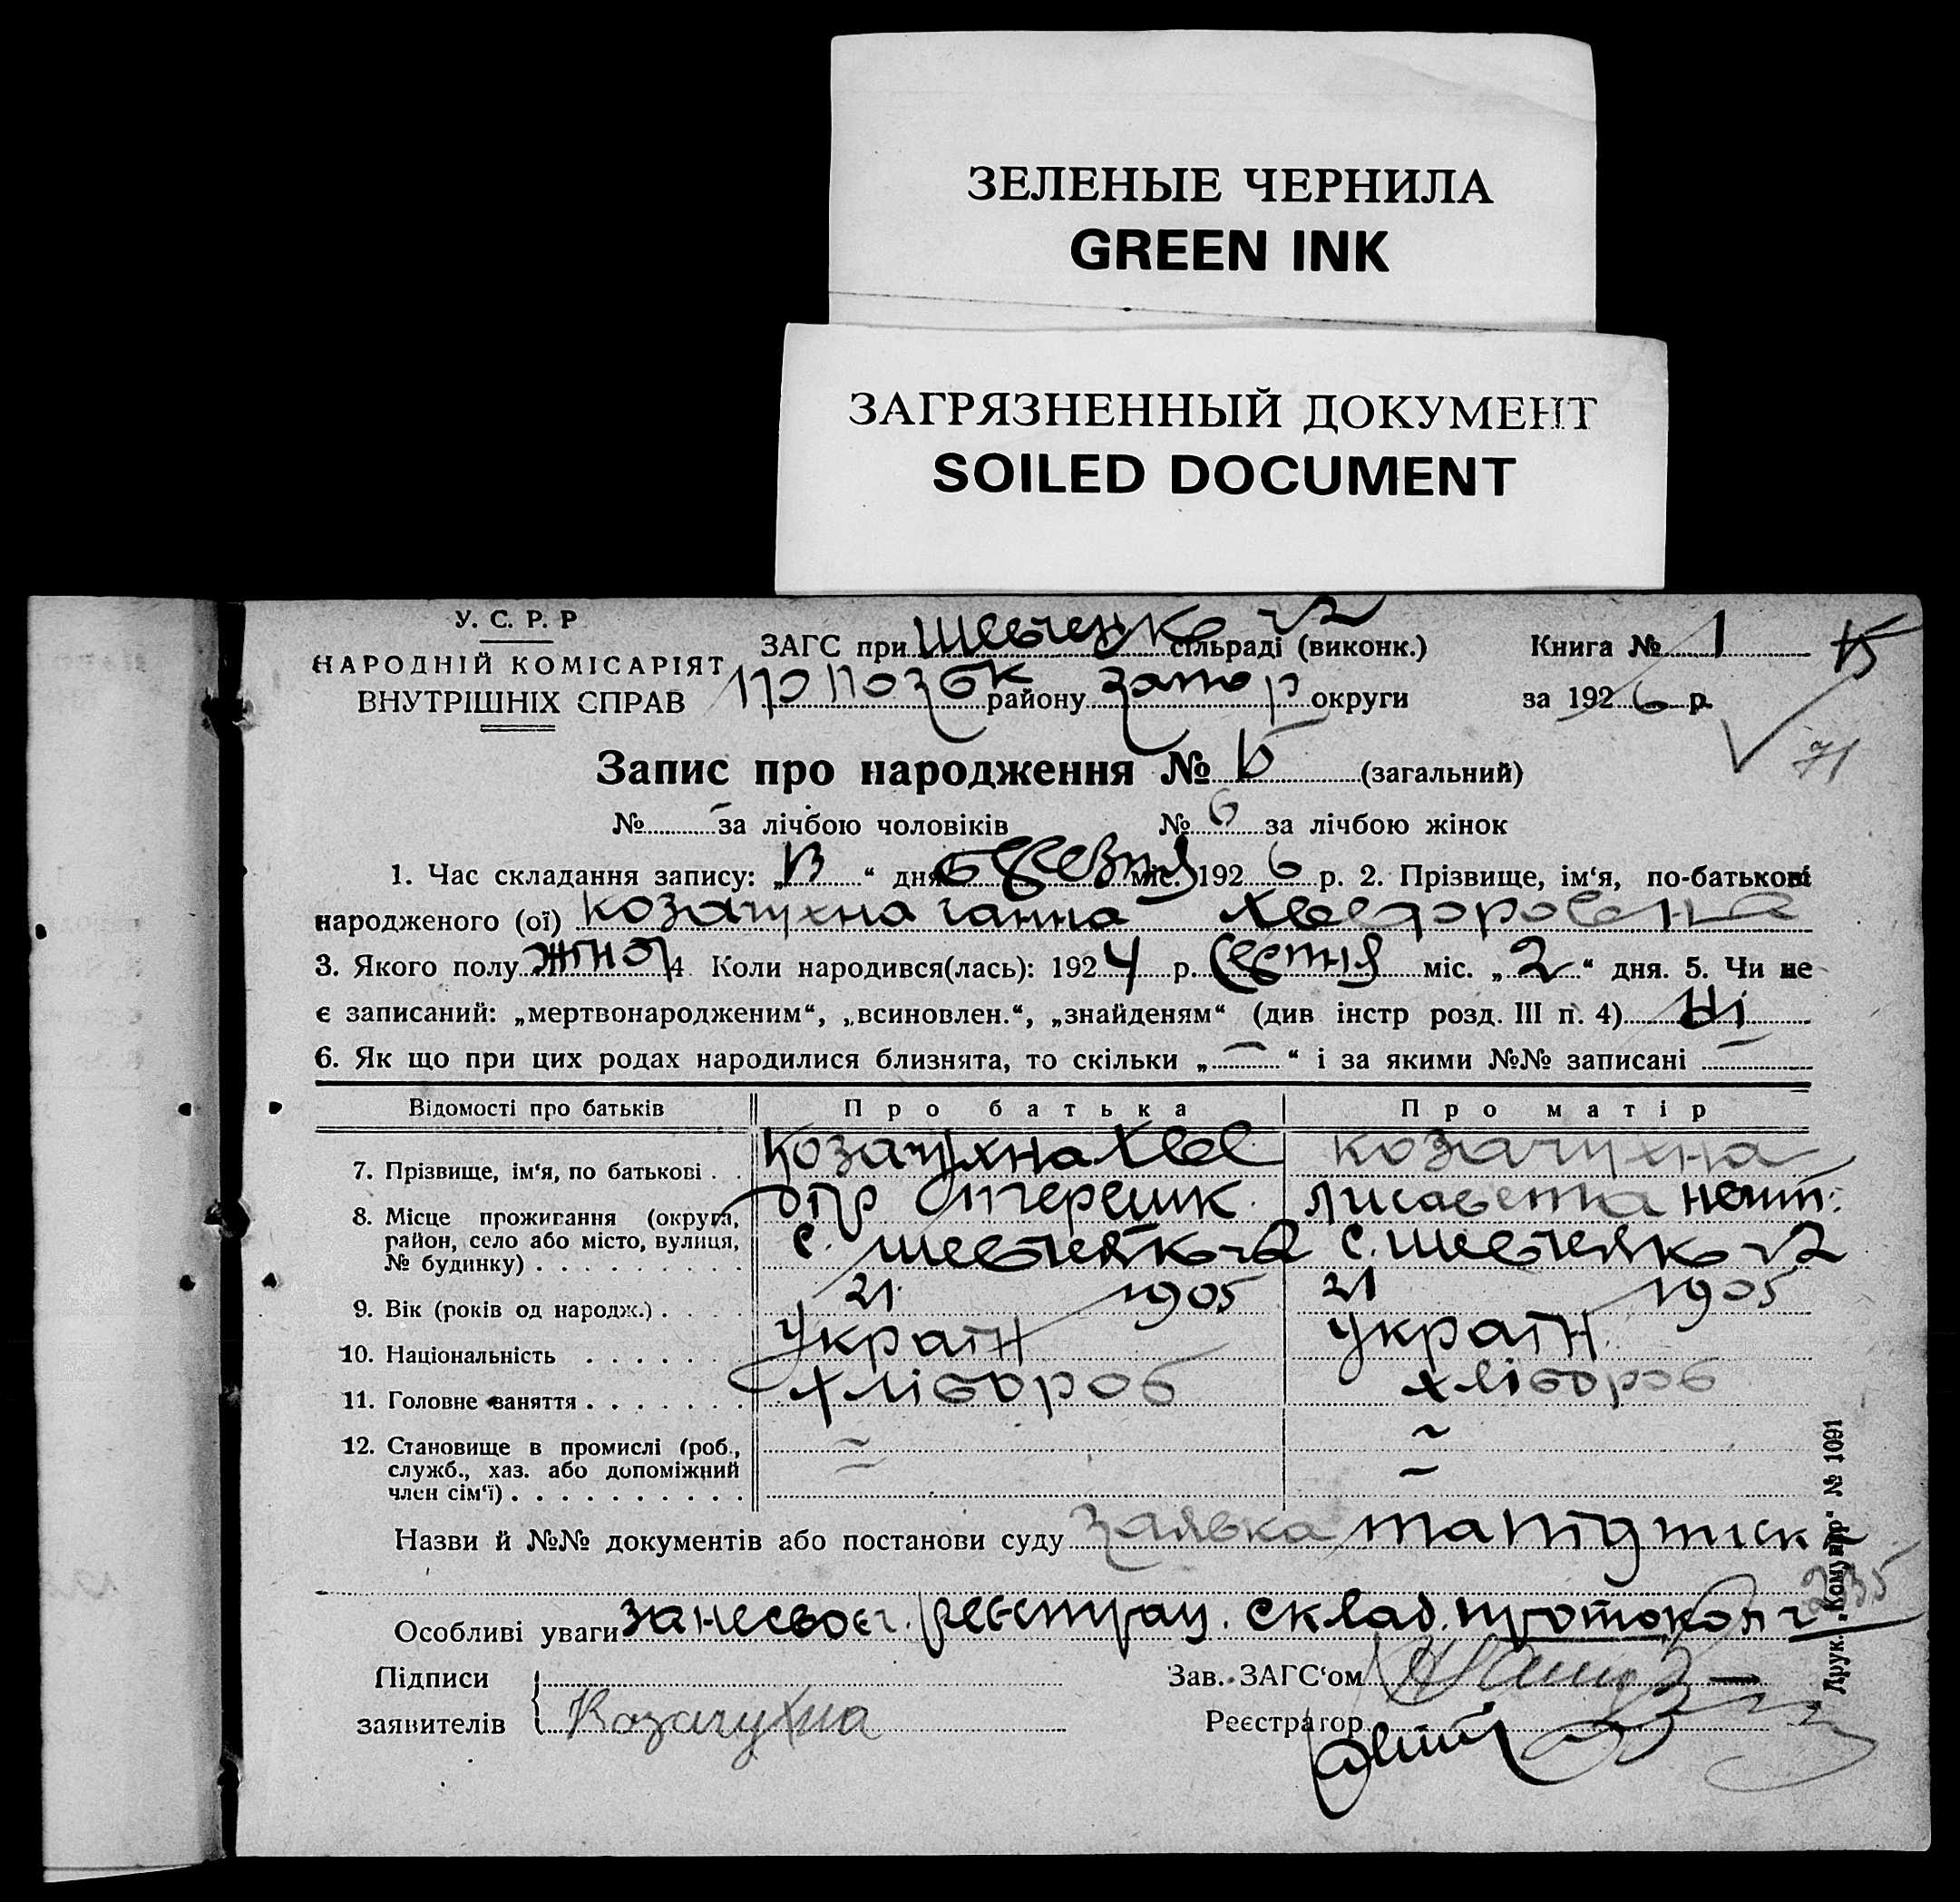 ЗЕЛЕНЫЕ ЧЕРНИЛА
GREEN INK
ЗАГРЯЗНЕННЫЙ ДОКУМЕНТ
SOILED DOCUMENT
У. С. Р. Р
НАРОДНІЙ КОМІСАРІЯТ
ВНУТРІШНІХ СПРАВ
ЗАГС при сільраді (виконк.)
району Запор округи
Книга № 1
за 1926 р.
15
71
Запис про народження № 15 (загальний)
№ — за лічбою чоловіків № 6 за лічбою жінок
1. Час складання запису: „13“ дня березня міс. 1926 р. 2. Прізвище, ім‘я, по-батькові
народженого (ої) Козачухна Ганна Хведоровна
3. Якого полу жіноч 4 Коли народився(лась): 1924 р. серпня міс. „2“ дня. 5. Чи не
є записаний: „мертвонародженим“, „всиновлен.“, „знайденям“ (див інстр розд. III п. 4) Ні
6. Як що при цих родах народилися близнята, то скільки „—“ і за якими №№ записані —
Відомості про батьків Про батька Про матір
7. Прізвище, ім‘я, по батькові . . Козачухна Хве Козачухна
8. Місце проживання (округа, район, село або місто, вулиця, № будинку) Лисавета
с. с.
9. Вік (років од народж.) . 21 1905 21 1905
10. Національність Україн Україн.
11. Головне заняття хлібороб хлібороб
12. Становище в промислі (роб., служб., хаз. або допоміжний член сім‘ї) — —
Назви й №№ документів або постанови суду заявка та підписка
235
Особливі уваги за несвоєч. реєстрац. склад. протокол
Підписи
заявителів Козачухна
Зав. ЗАГС‘ом
Реєстратор
Друк. „Комунар“ № 1091